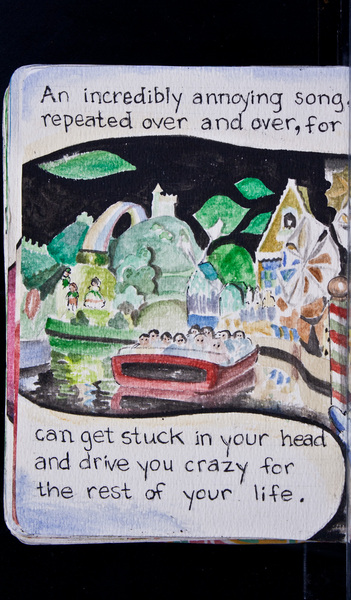 An incredibly annoying song,
repeated over and over, for
can get stuck in your head
and drive you crazy for
the rest of your life.